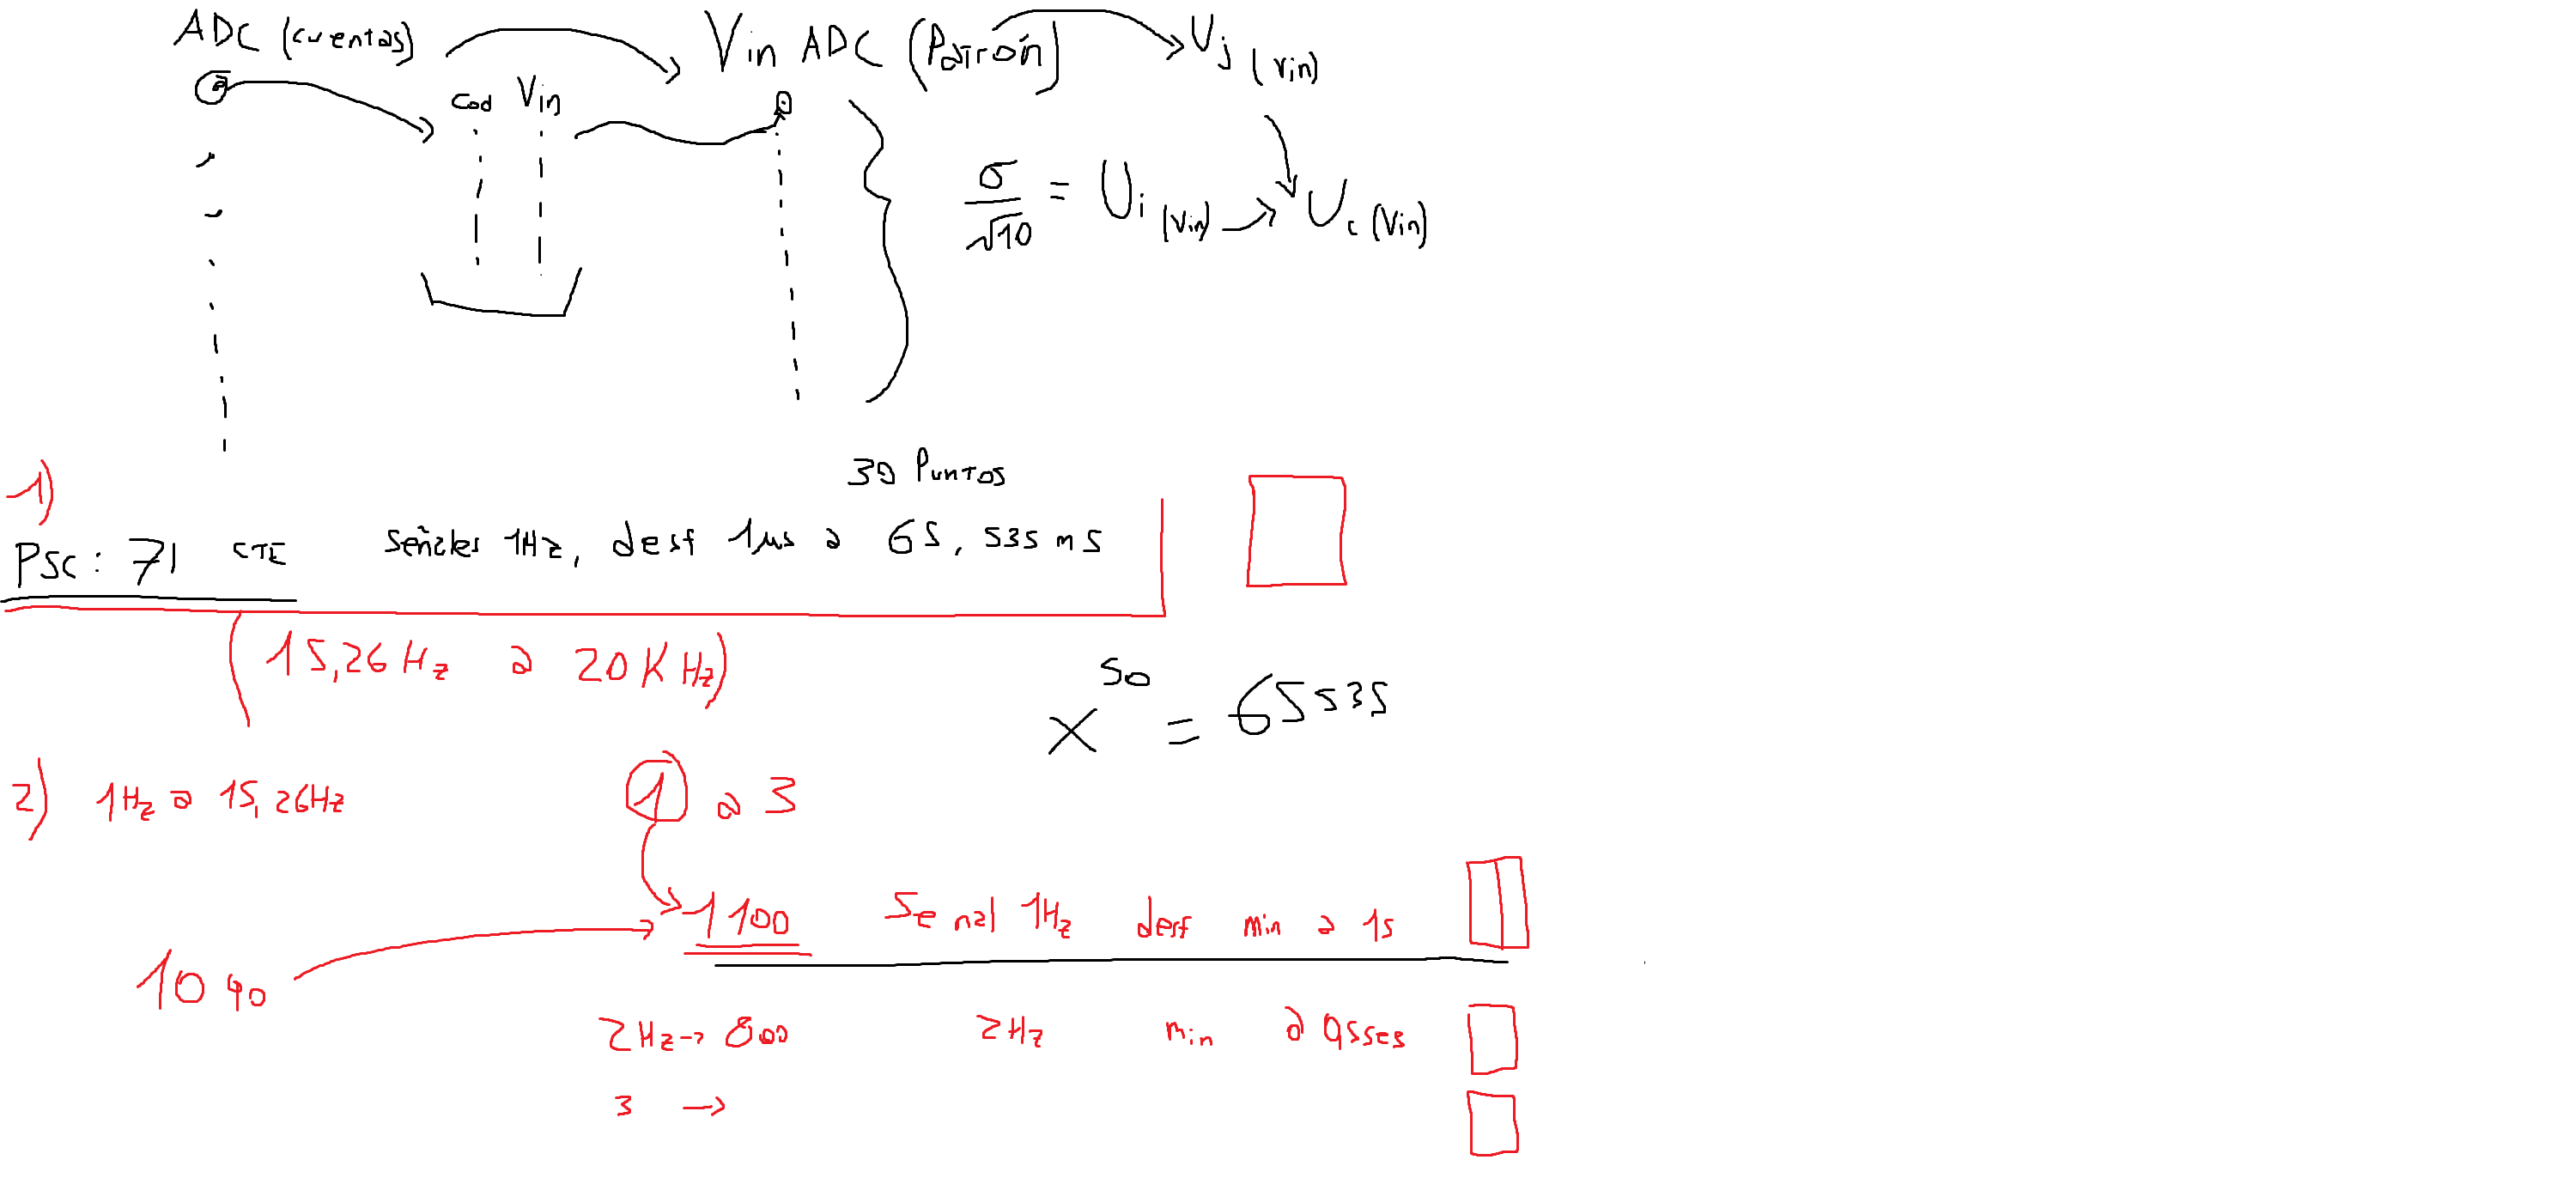 ADC (cuentas) Vin ADC (Patrón) Uj (Vin)
Cod Vin
σ/√10 = Ui (Vin) → Uc (Vin)
30 Puntos
1)
PSC: 71 CTE señales 1Hz, desf 1μs a 65,535 ms
(15,26Hz a 20KHz)
x^50 = 65535
2) 1Hz a 15,26Hz 1 a 3
1100 Senal 1Hz desf min a 1s
10 90
2Hz → 800 2Hz min a
3 →